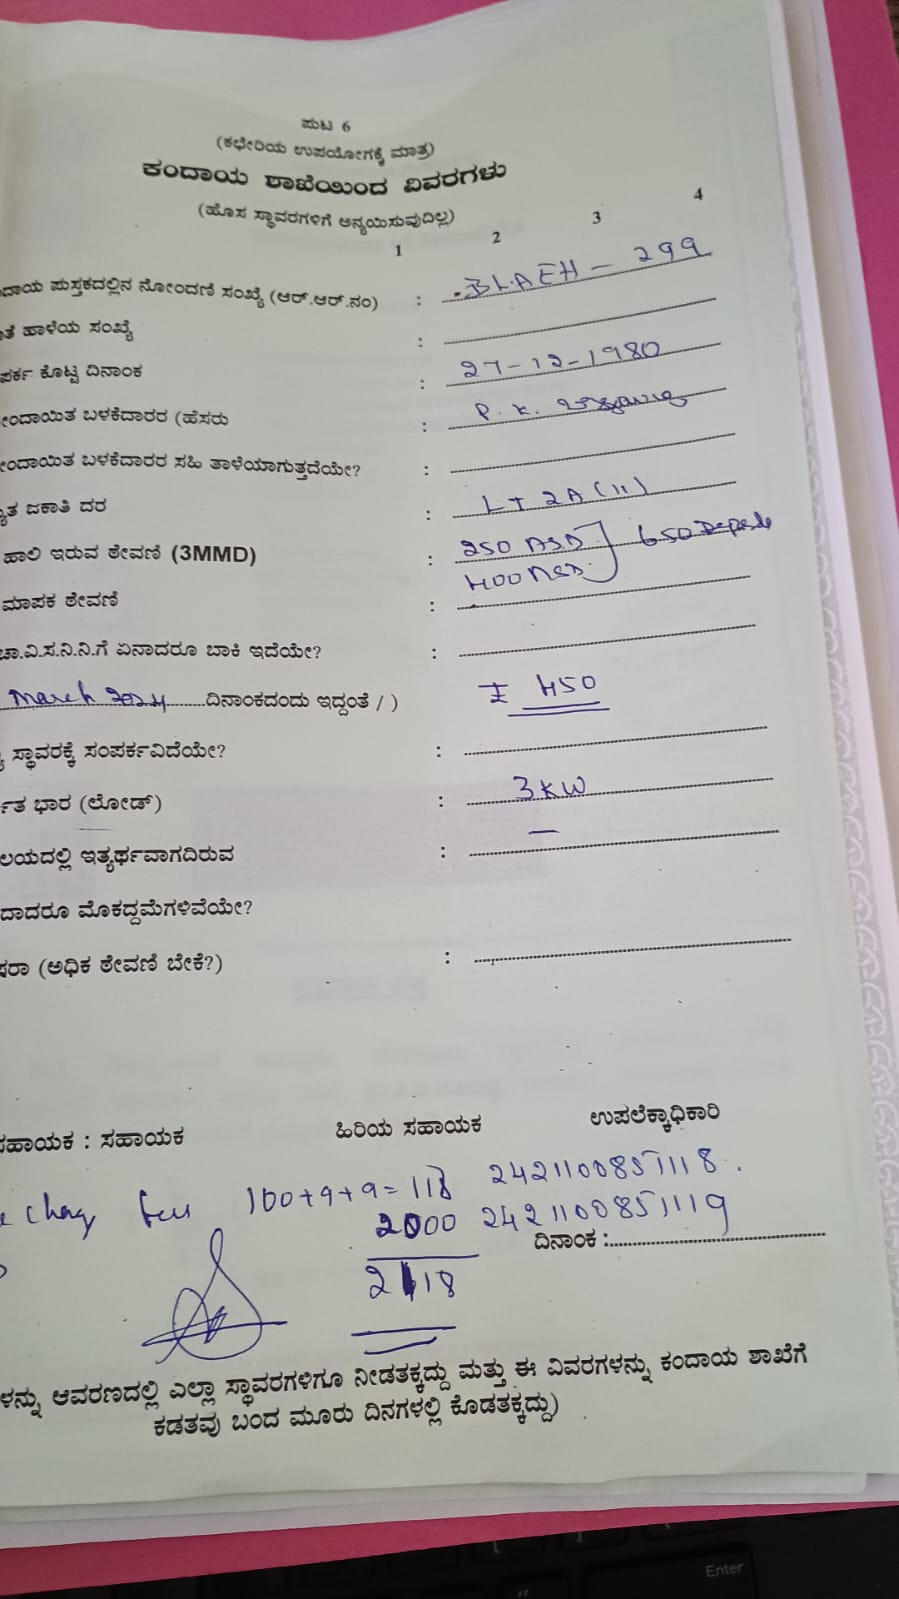 ಪುಟ 6
(ಕಛೇರಿಯ ಉಪಯೋಗಕ್ಕೆ ಮಾತ್ರ)
ಕಂದಾಯ ಶಾಖೆಯಿಂದ ವಿವರಗಳು
(ಹೊಸ ಸ್ಥಾವರಗಳಿಗೆ ಅನ್ವಯಿಸುವುದಿಲ್ಲ)
1 2 3 4
ದಾಯ ಪುಸ್ತಕದಲ್ಲಿನ ನೋಂದಣಿ ಸಂಖ್ಯೆ (ಆರ್.ಆರ್.ನಂ) : - 299
ತೆ ಹಾಳೆಯ ಸಂಖ್ಯೆ :
ಪರ್ಕ ಕೊಟ್ಟ ದಿನಾಂಕ : 27-12-1980
ೋಂದಾಯಿತ ಬಳಕೆದಾರರ (ಹೆಸರು : P. K.
ೋಂದಾಯಿತ ಬಳಕೆದಾರರ ಸಹಿ ತಾಳೆಯಾಗುತ್ತದೆಯೇ? :
ತ ಜಕಾತಿ ದರ : LT 2A (ii)
ಹಾಲಿ ಇರುವ ಠೇವಣಿ (3MMD) : 250 650
400
ಮಾಪಕ ಠೇವಣಿ :
ಚಾ.ವಿ.ಸ.ನಿ.ನಿ.ಗೆ ಏನಾದರೂ ಬಾಕಿ ಇದೆಯೇ? :
March 2024 ದಿನಾಂಕದಂದು ಇದ್ದಂತೆ / ) ₹ 450
ಸ್ಥಾವರಕ್ಕೆ ಸಂಪರ್ಕವಿದೆಯೇ? :
ತ ಭಾರ (ಲೋಡ್) : 3KW
ಲಯದಲ್ಲಿ ಇತ್ಯರ್ಥವಾಗದಿರುವ : —
ದಾದರೂ ಮೊಕದ್ದಮೆಗಳಿವೆಯೇ?
ಷರಾ (ಅಧಿಕ ಠೇವಣಿ ಬೇಕೆ?) :
ಸಹಾಯಕ : ಸಹಾಯಕ ಹಿರಿಯ ಸಹಾಯಕ ಉಪಲೆಕ್ಕಾಧಿಕಾರಿ
100+9+9=118 2421100851118.
2000 2421100851119
ದಿನಾಂಕ :
2118
ಳನ್ನು ಆವರಣದಲ್ಲಿ ಎಲ್ಲಾ ಸ್ಥಾವರಗಳಿಗೂ ನೀಡತಕ್ಕದ್ದು ಮತ್ತು ಈ ವಿವರಗಳನ್ನು ಕಂದಾಯ ಶಾಖೆಗೆ
ಕಡತವು ಬಂದ ಮೂರು ದಿನಗಳಲ್ಲಿ ಕೊಡತಕ್ಕದ್ದು)
Enter